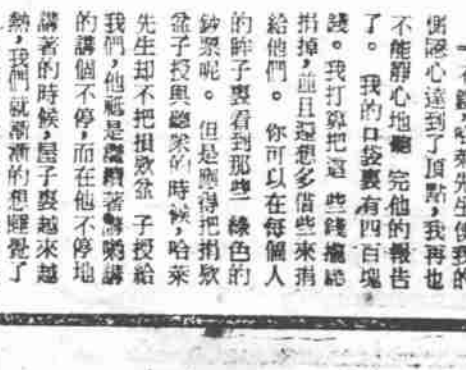 不錯,哈萊先生使我的
惻隱心達到了頂點,我再也
不能靜心地聽 完他的報告
了。 我的口袋裏有四百塊
錢。我打算把這 些錢攏總
捐掉,並且還想多借些來捐
給他們。 你可以在每個人
的眸子裏看到那些 綠色的
鈔票呢。 但是應得把捐欵
盆子授與聽衆的時候,哈萊
先生却不把捐欵盆 子授給
我們,他祗是繼續著講喲講
的講個不停,而在他不停地
講著的時候,屋子裏越來越
熱,我們就漸漸的想睡覺了